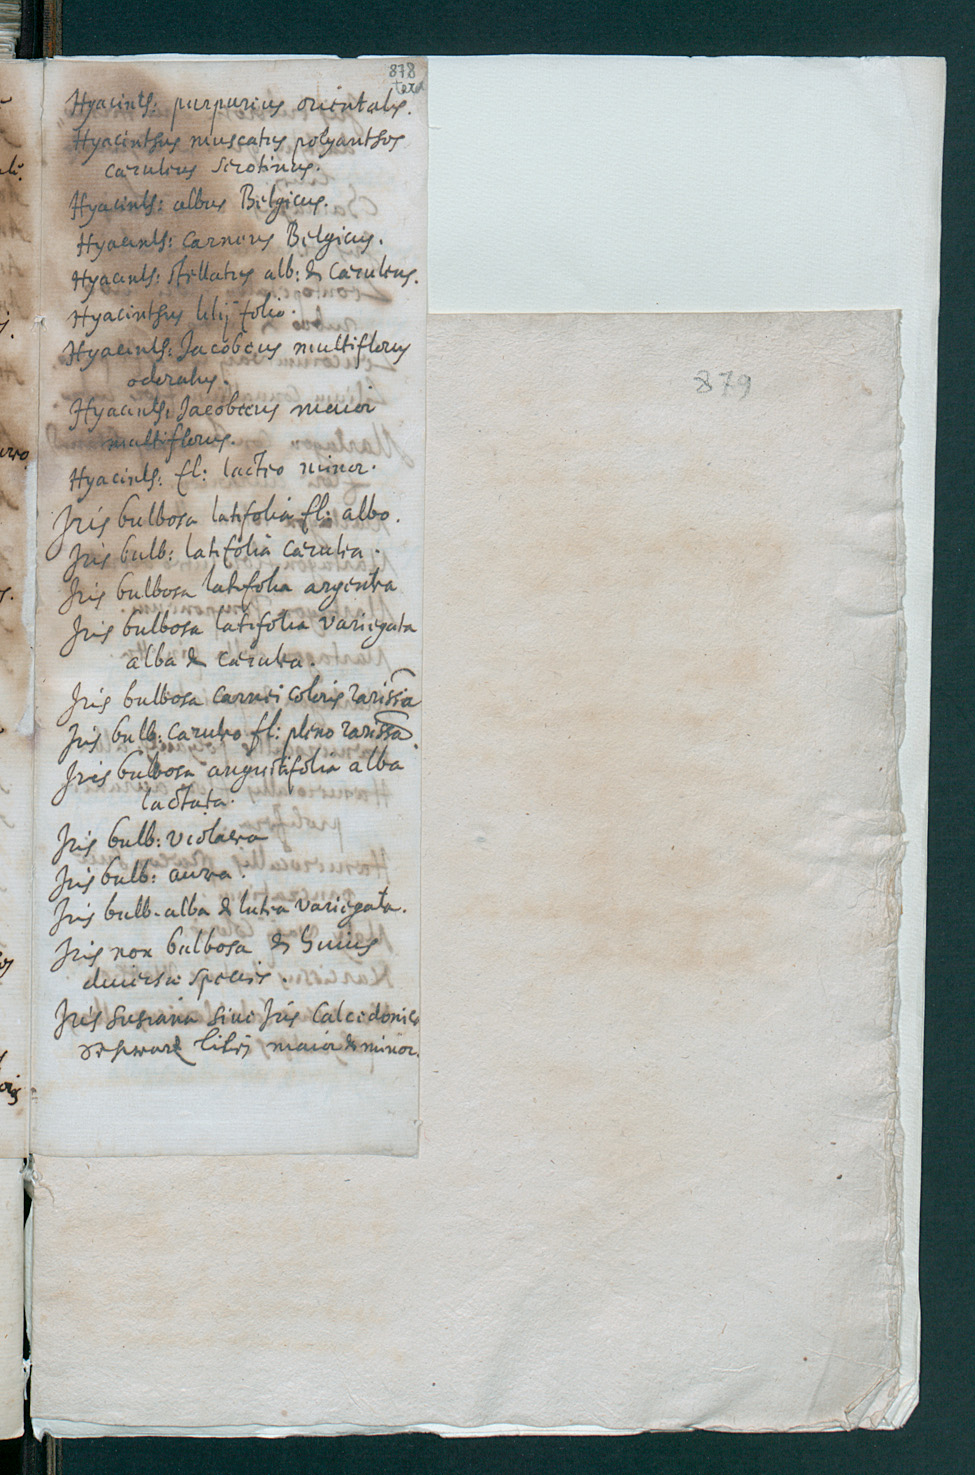 878
Hyacinth: purpureus orientalis.
Hyacinthus muscatus polyanthos
caeruleus serotinus.
Hyacinth: albus Belgicus.
Hyacinth: carneus Belgicus.
Hyacinth: stellatus alb: & caeruleus.
Hyacinthus lilij folio.
Hyacinth: Jacobeus multiflorus
odoratus.
Hyacinth: Jacobeus maior
multiflorus.
Hyacinth: fl: lacteo minor.
Iris bulbosa latifolia fl: albo.
Iris bulb: latifolia caerulea.
Iris bulbosa latifolia argentea
Iris bulbosa latifolia variegata
alba & caerulea.
Iris bulbosa carnei coloris rarissa
Iris bulb: caeruleo fl: pleno rarissa.
Iris bulbosa angustifolia alba
lacteata.
Iris bulb: violacea
Iris bulb: aurea.
Iris bulb. alba & lutea variegata.
Iris non bulbosa & huius
diversae species.
Iris Susiana sive Iris Calcedonica
maior & minor.
879